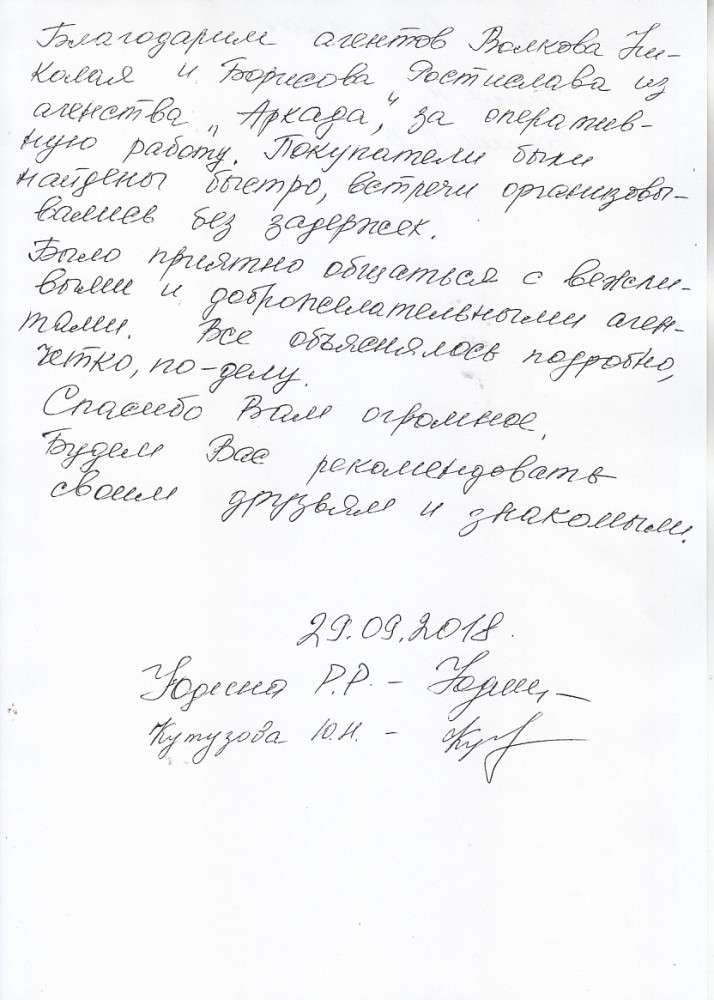 Благодарим агентов Волкова Ни-
колая и Борисова Ростислава из
агенства "Аркада", за оператив-
ную работу. Покупатели были
найдены быстро, встречи организовы-
вались без задержек.
Было приятно общаться с вежли-
выми и доброжелательными аген-
тами. Все объяснялось подробно,
четко, по-делу.
Спасибо Вам огромное,
Будем Вас рекомендовать
своим друзьям и знакомым.
29.09.2018.
Р.Р. -
Кутузова Ю.Н. -